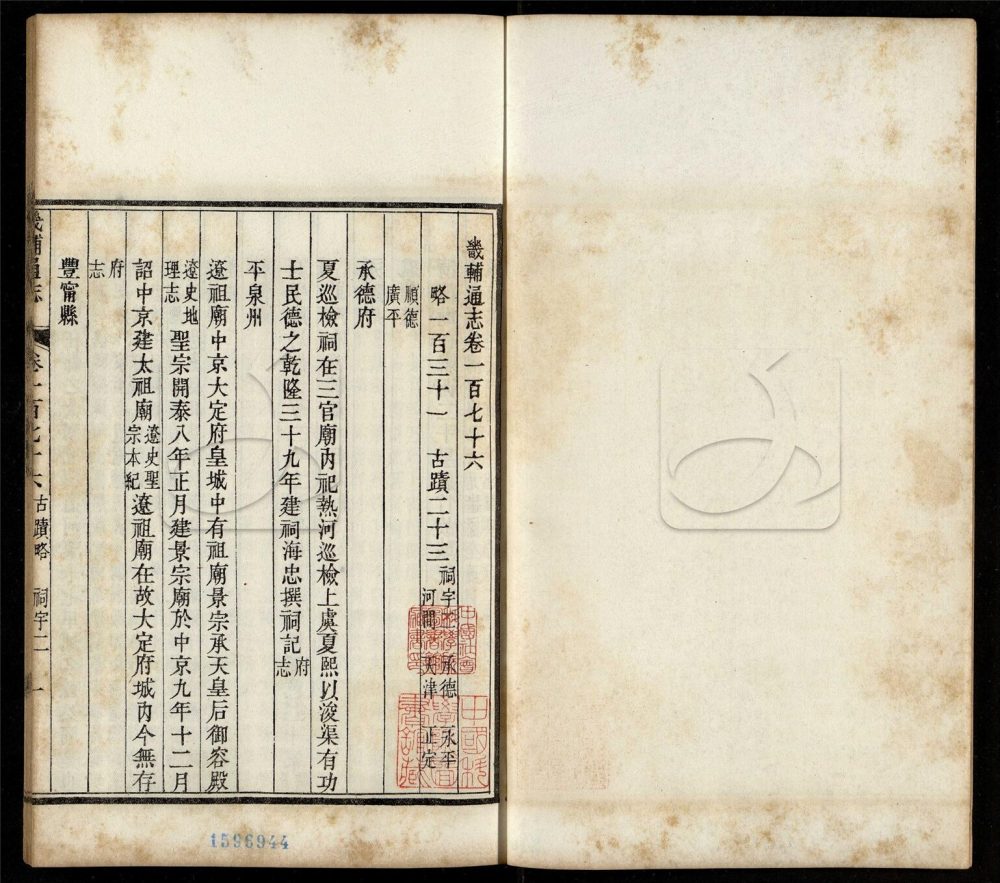 畿輔通志卷一百七十六
略一百三十一 古蹟二十三 祠宇二 承德 永平 河間 天津 正定
順德 廣平
承德府
夏巡檢祠在三官廟內祀熱河巡檢上虞夏熙以浚渠有功
士民德之乾隆三十九年建祠海忠撰祠記府志
平泉州
遼祖廟中京大定府皇城中有祖廟景宗承天皇后御容殿
遼史地理志 聖宗開泰八年正月建景宗廟於中京九年十二月
詔中京建太祖廟遼史聖宗本紀遼祖廟在故大定府城內今無存
府志
豐甯縣
畿輔通志 卷一百七十六 古蹟略 祠宇二 一
1596944